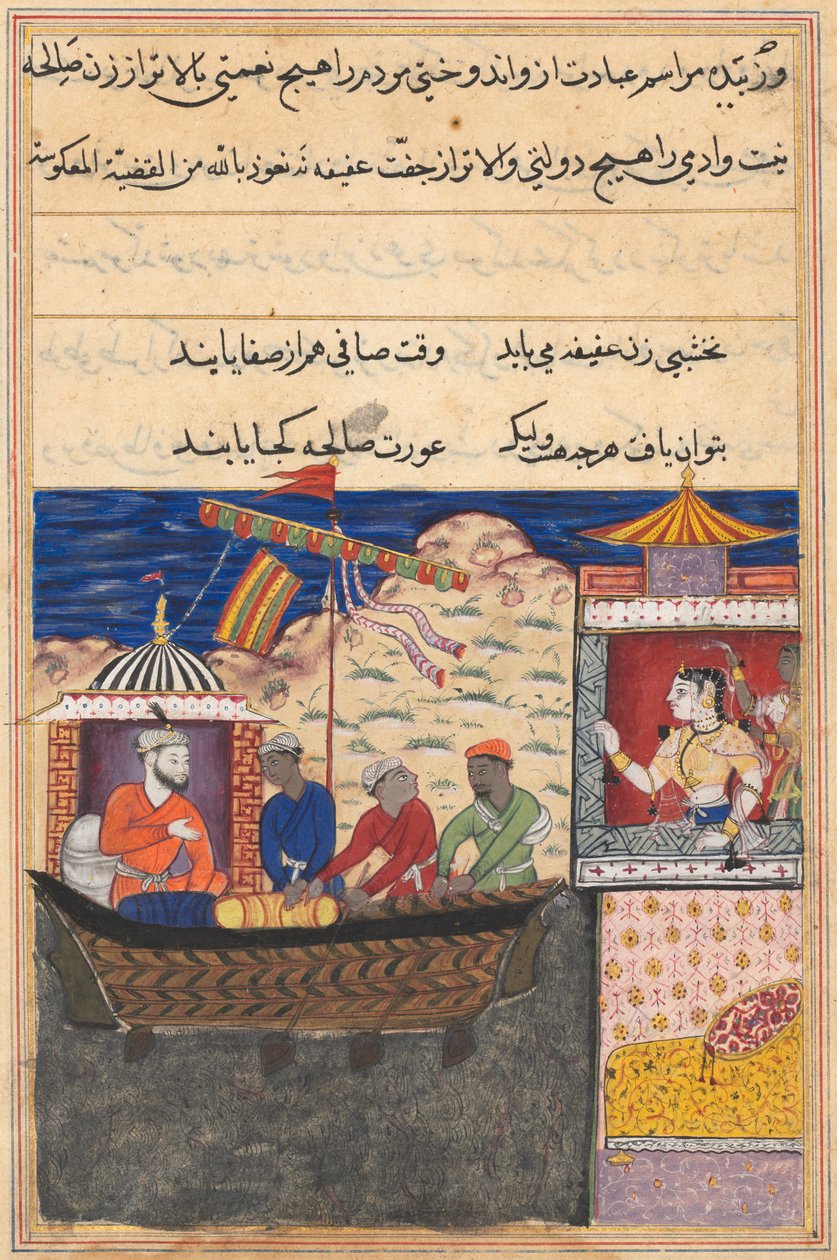 وزبیده مراسم عبادت از واند وختی مردم را هیچ نعمتی بالاتر از زن صالحه
نیست وادمی را هیچ دولتی والاتر از جفت عفیفه نه نعوذ بالله من القضیّة المعکوسة
نخشبی زن عفیفه می باید وقت صافی هم از صفا یابند
بتوان یافت هرچه هست ولیک عورت صالحه کجا یابند